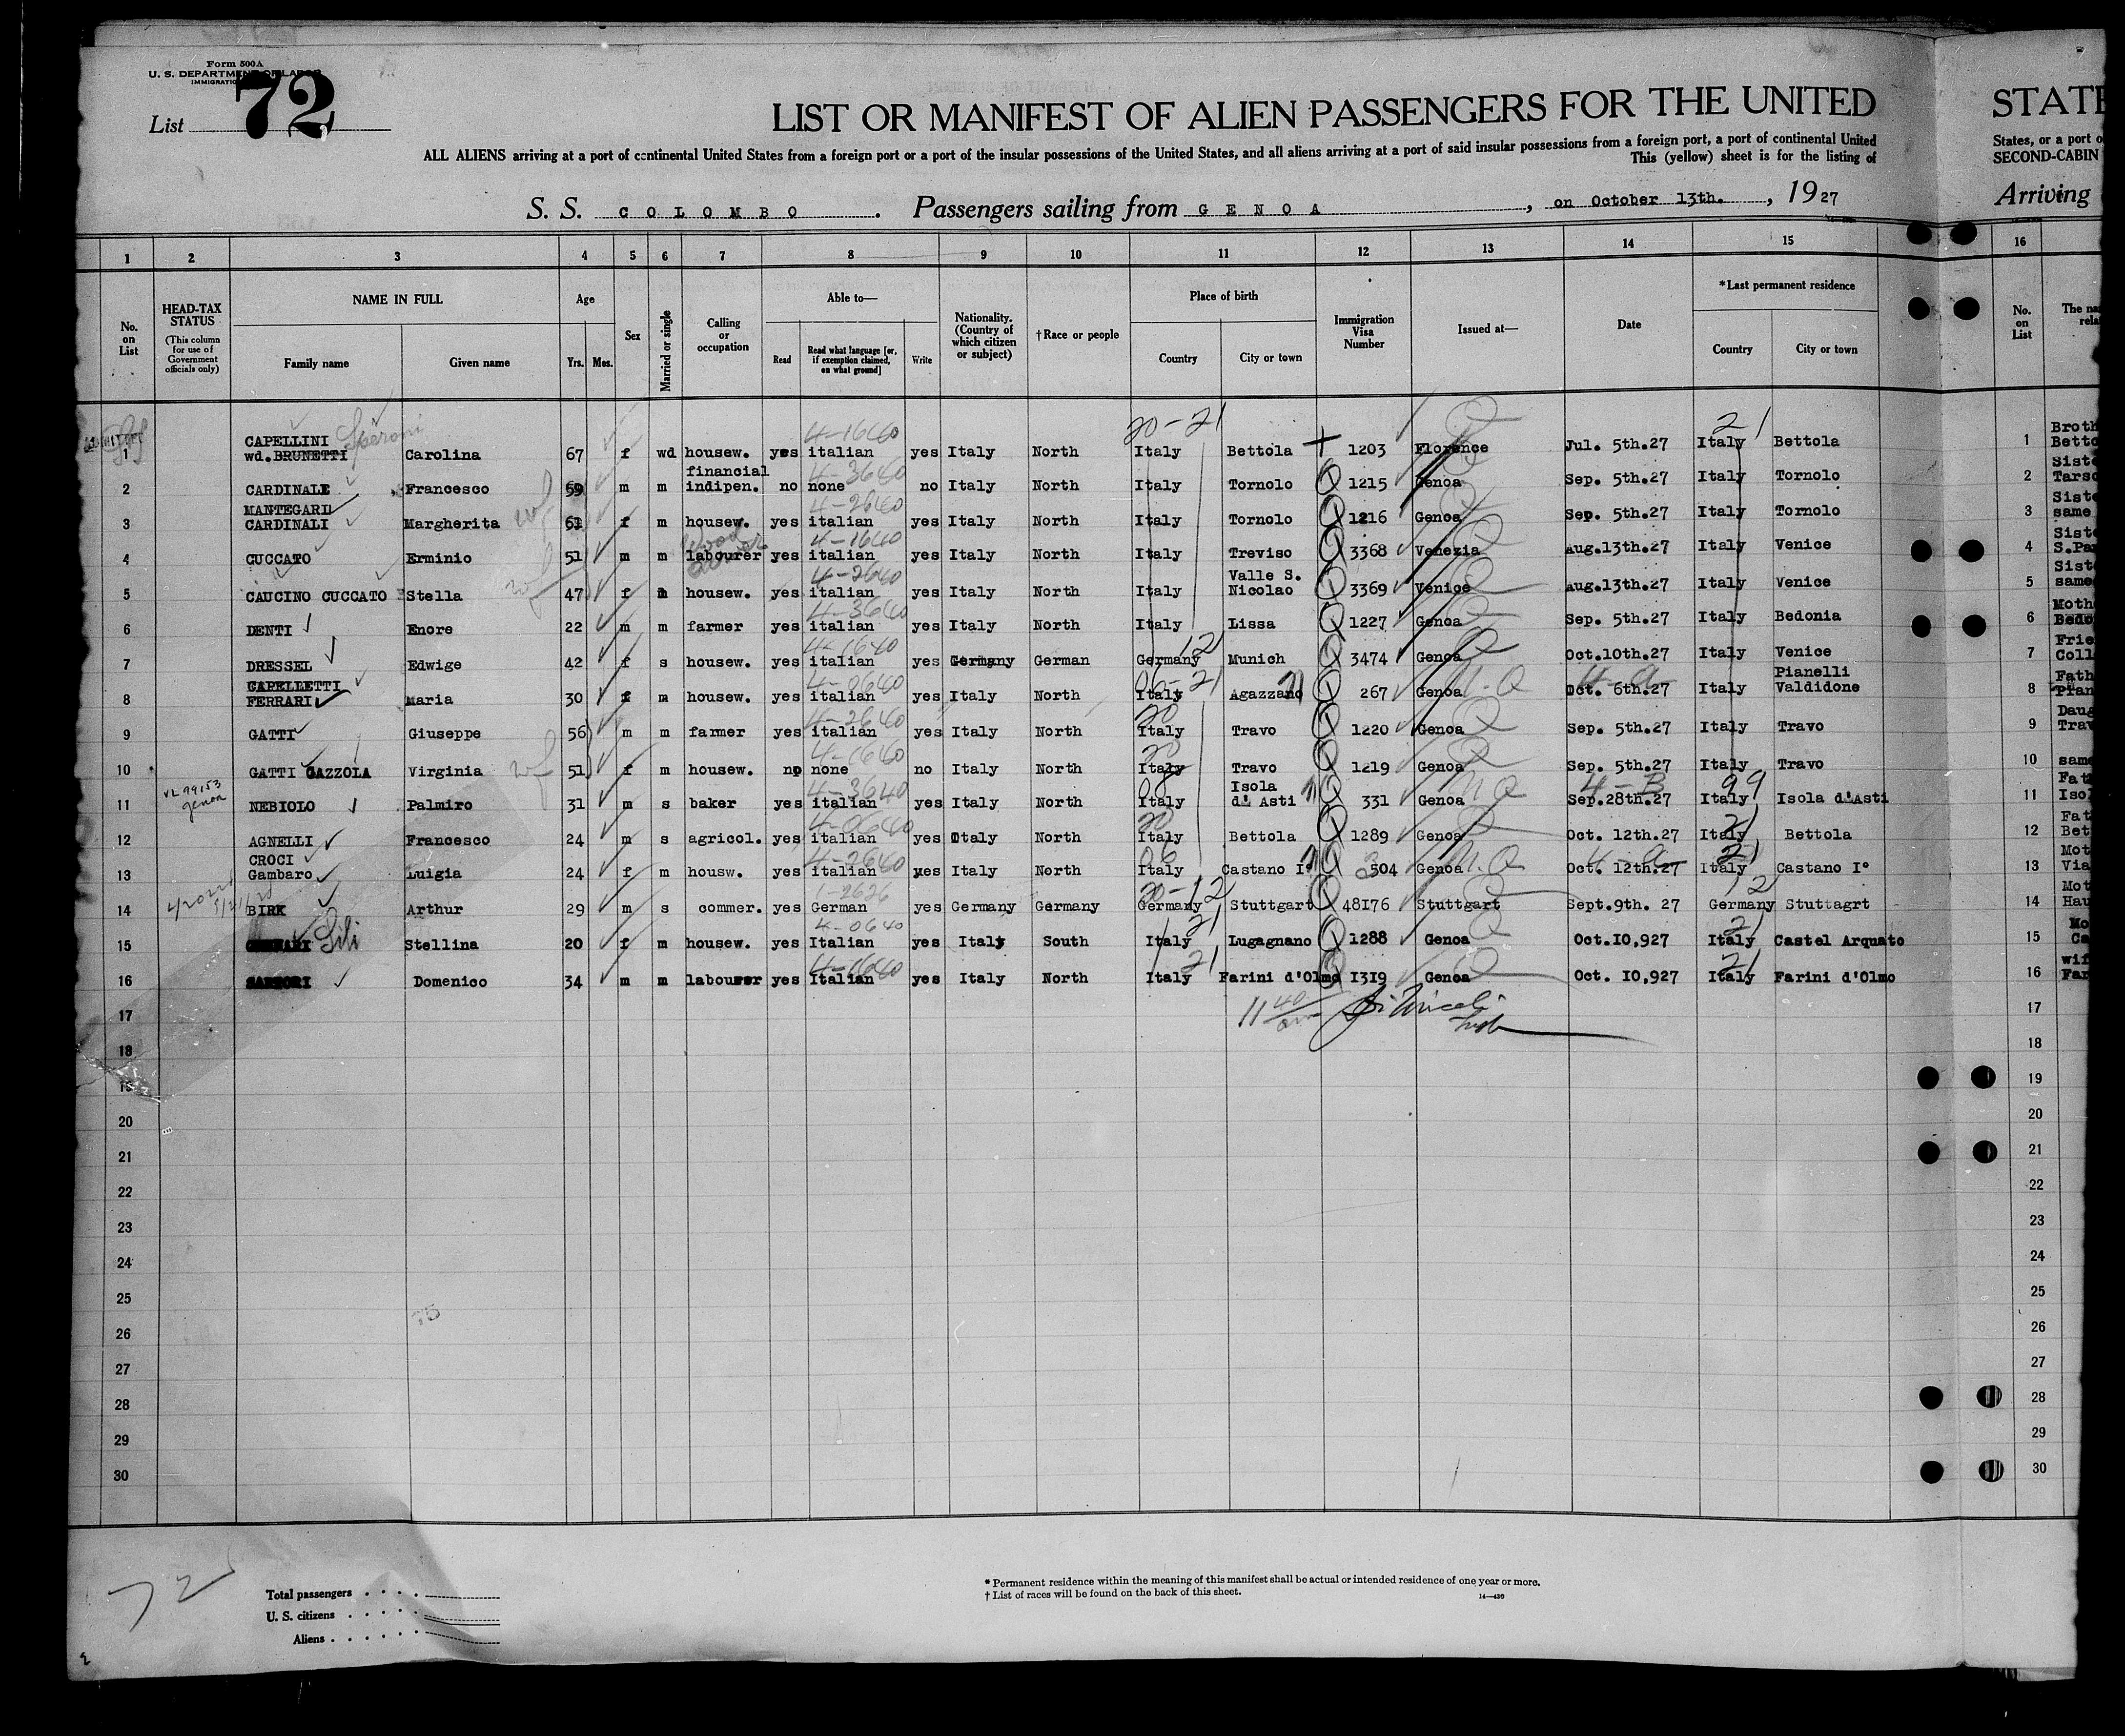 Form 500A
U. S. DEPARTMENT OF LABOR
IMMIGRATION
List 72
LIST OR MANIFEST OF ALIEN PASSENGERS FOR THE UNITED STATE
ALL ALIENS arriving at a port of continental United States from a foreign port or a port of the insular possessions of the United States, and all aliens arriving at a port of said insular possessions from a foreign port, a port of continental United States, or a port o
This (yellow) sheet is for the listing of SECOND-CABIN
S. S. COLOMBO . Passengers sailing from GENOA , on October 13th. , 1927 Arriving
1 2 3 4 5 6 7 8 9 10 11 12 13 14 15 16
No. on List
HEAD-TAX STATUS (This column for use of Government officials only)
NAME IN FULL Family name Given name
Age Yrs. Mos.
Sex
Married or single
Calling or occupation
Able to— Read Read what language [or, if exemption claimed, on what ground] Write
Nationality. (Country of which citizen or subject)
†Race or people
Place of birth Country City or town
Immigration Visa Number
Issued at—
Date
*Last permanent residence Country City or town
No. on List
The na
rela
1 CAPELLINI wd. BRUNETTI Speroni Carolina 67 f wd housew. yes italian 4-1640 yes Italy North Italy 20-21 Bettola 1203 Florence Jul. 5th.27 Italy 21 Bettola 1 Broth Betto
2 CARDINALE Francesco 59 m m financial indipen. no none 4-3640 no Italy North Italy Tornolo Q 1215 Genoa Sep. 5th.27 Italy Tornolo 2 Siste Tarso
3 MANTEGARI CARDINALI Margherita 61 f m housew. yes italian 4-2640 yes Italy North Italy Tornolo Q 1216 Genoa Sep. 5th.27 Italy Tornolo 3 Siste same
4 CUCCATO Erminio 51 m m labourer yes italian 4-1640 yes Italy North Italy Treviso Q 3368 Venezia Aug.13th.27 Italy Venice 4 Siste S.Pa
5 CAUCINO CUCCATO Stella wf 47 f m housew. yes italian 4-2640 yes Italy North Italy Valle S. Nicolao Q 3369 Venice Aug.13th.27 Italy Venice 5 Sist same
6 DENTI Enore 22 m m farmer yes italian 4-3640 yes Italy North Italy Lissa Q 1227 Genoa Sep. 5th.27 Italy Bedonia 6 Moth Bedo
7 DRESSEL Edwige 42 f s housew. yes italian 4-1640 yes Germany German Germany 12 Munich Q 3474 Genoa Oct.10th.27 Italy Venice 7 Frie Coll
8 CAPELLETTI FERRARI Maria 30 f m housew. yes italian 4-0640 yes Italy North Italy 06-21 Agazzano Q 267 Genoa N.Q Oct. 6th.27 4-a Italy Pianelli Valdidone 8 Fath Pian
9 GATTI Giuseppe 56 m m farmer yes italian 4-2640 yes Italy North Italy 20 Travo Q 1220 Genoa Sep. 5th.27 Italy Travo 9 Daug Trav
10 GATTI GAZZOLA Virginia wf 51 f m housew. no none 4-0640 no Italy North Italy 20 Travo Q 1219 Genoa Sep. 5th.27 Italy Travo 10 same
11 VL 99153 genoa NEBIOLO Palmiro 31 m s baker yes italian 4-3640 yes Italy North Italy 08 Isola d'Asti Q 331 Genoa N Q Sep.28th.27 4-B Italy 99 Isola d'Asti 11 Fat Isol
12 AGNELLI Francesco 24 m s agricol. yes italian 4-0640 yes Italy North Italy 20 Bettola Q 1289 Genoa Oct. 12th.27 Italy 21 Bettola 12 Fat Bet
13 CROCI Gambaro Luigia 24 f m housw. yes italian 4-2640 yes Italy North Italy 06 Castano I° Q 304 Genoa N.Q Oct. 12th.27 4-a Italy 21 Castano I° 13 Mot Via
14 BIRK Arthur 29 m s commer. yes German 1-2626 yes Germany Germany Germany 20-12 Stuttgart Q 48176 Stuttgart Sept.9th. 27 Germany 12 Stuttagrt 14 Mot Hau
15 Sili Stellina 20 f m housew. yes Italian 4-0640 yes Italy South Italy 21 Lugagnano Q 1288 Genoa Oct.10,927 Italy 21 Castel Arquato 15 Mo Ca
16 SARTORI Domenico 34 m m labourer yes Italian yes Italy North Italy 21 Farini d'Olmo 1319 Genoa Oct. 10,927 Italy 21 Farini d'Olmo 16 wif Far
17 11 40 am 17
18 18
19 19
20 20
21 21
22 22
23 23
24 24
25 25
75
26 26
27 27
28 28
29 29
30 30
72
Total passengers
U. S. citizens
Aliens
* Permanent residence within the meaning of this manifest shall be actual or intended residence of one year or more.
† List of races will be found on the back of this sheet.
14—439